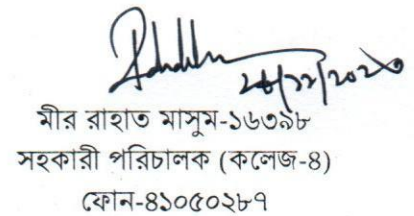 ২৪/১২/২০২৩
মীর রাহাত মাসুম-১৬৩৯৮
সহকারী পরিচালক (কলেজ-৪)
ফোন-৪১০৫০২৮৭